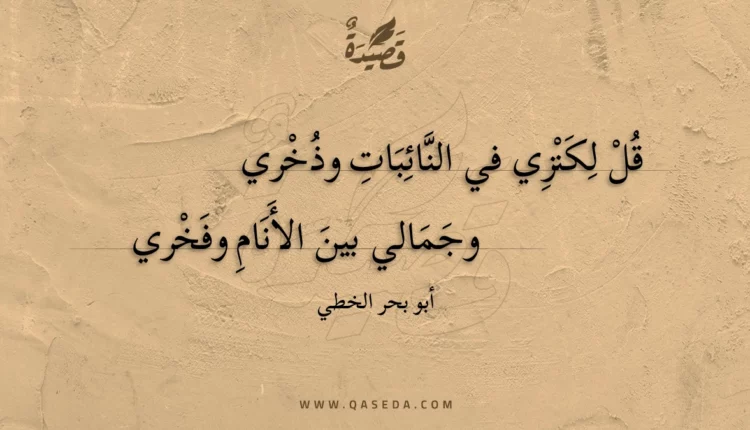 قَصِيدَةٌ
قُلْ لِكَنْزِي في النَّائِبَاتِ وذُخْري
وجَمَالي بينَ الأَنَامِ وفَخْري
أبو بحر الخطي
WWW.QASEDA.COM